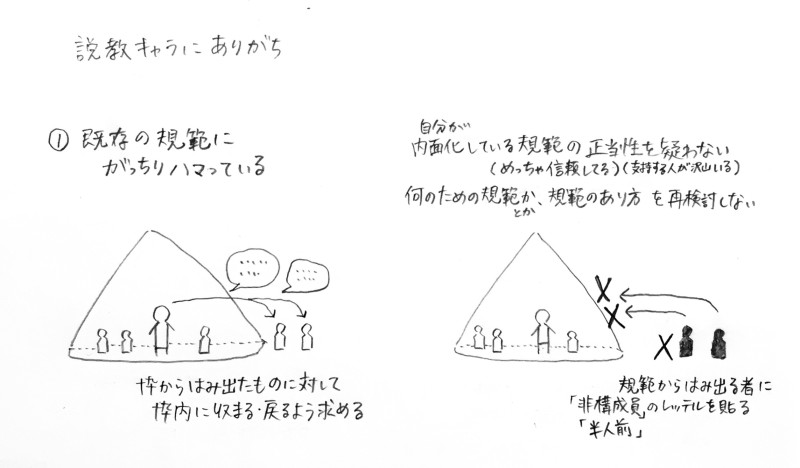 説教キャラにありがち
① 既存の規範に
がっちりハマっている
枠からはみ出たものに対して
枠内に収まる・戻るよう求める
自分が
内面化している規範の正当性を疑わない
(めっちゃ信頼してる)(支持する人が沢山いる)
何のための規範か、規範のあり方を再検討しない
とか
規範からはみ出る者に
「非構成員」のレッテルを貼る
「半人前」